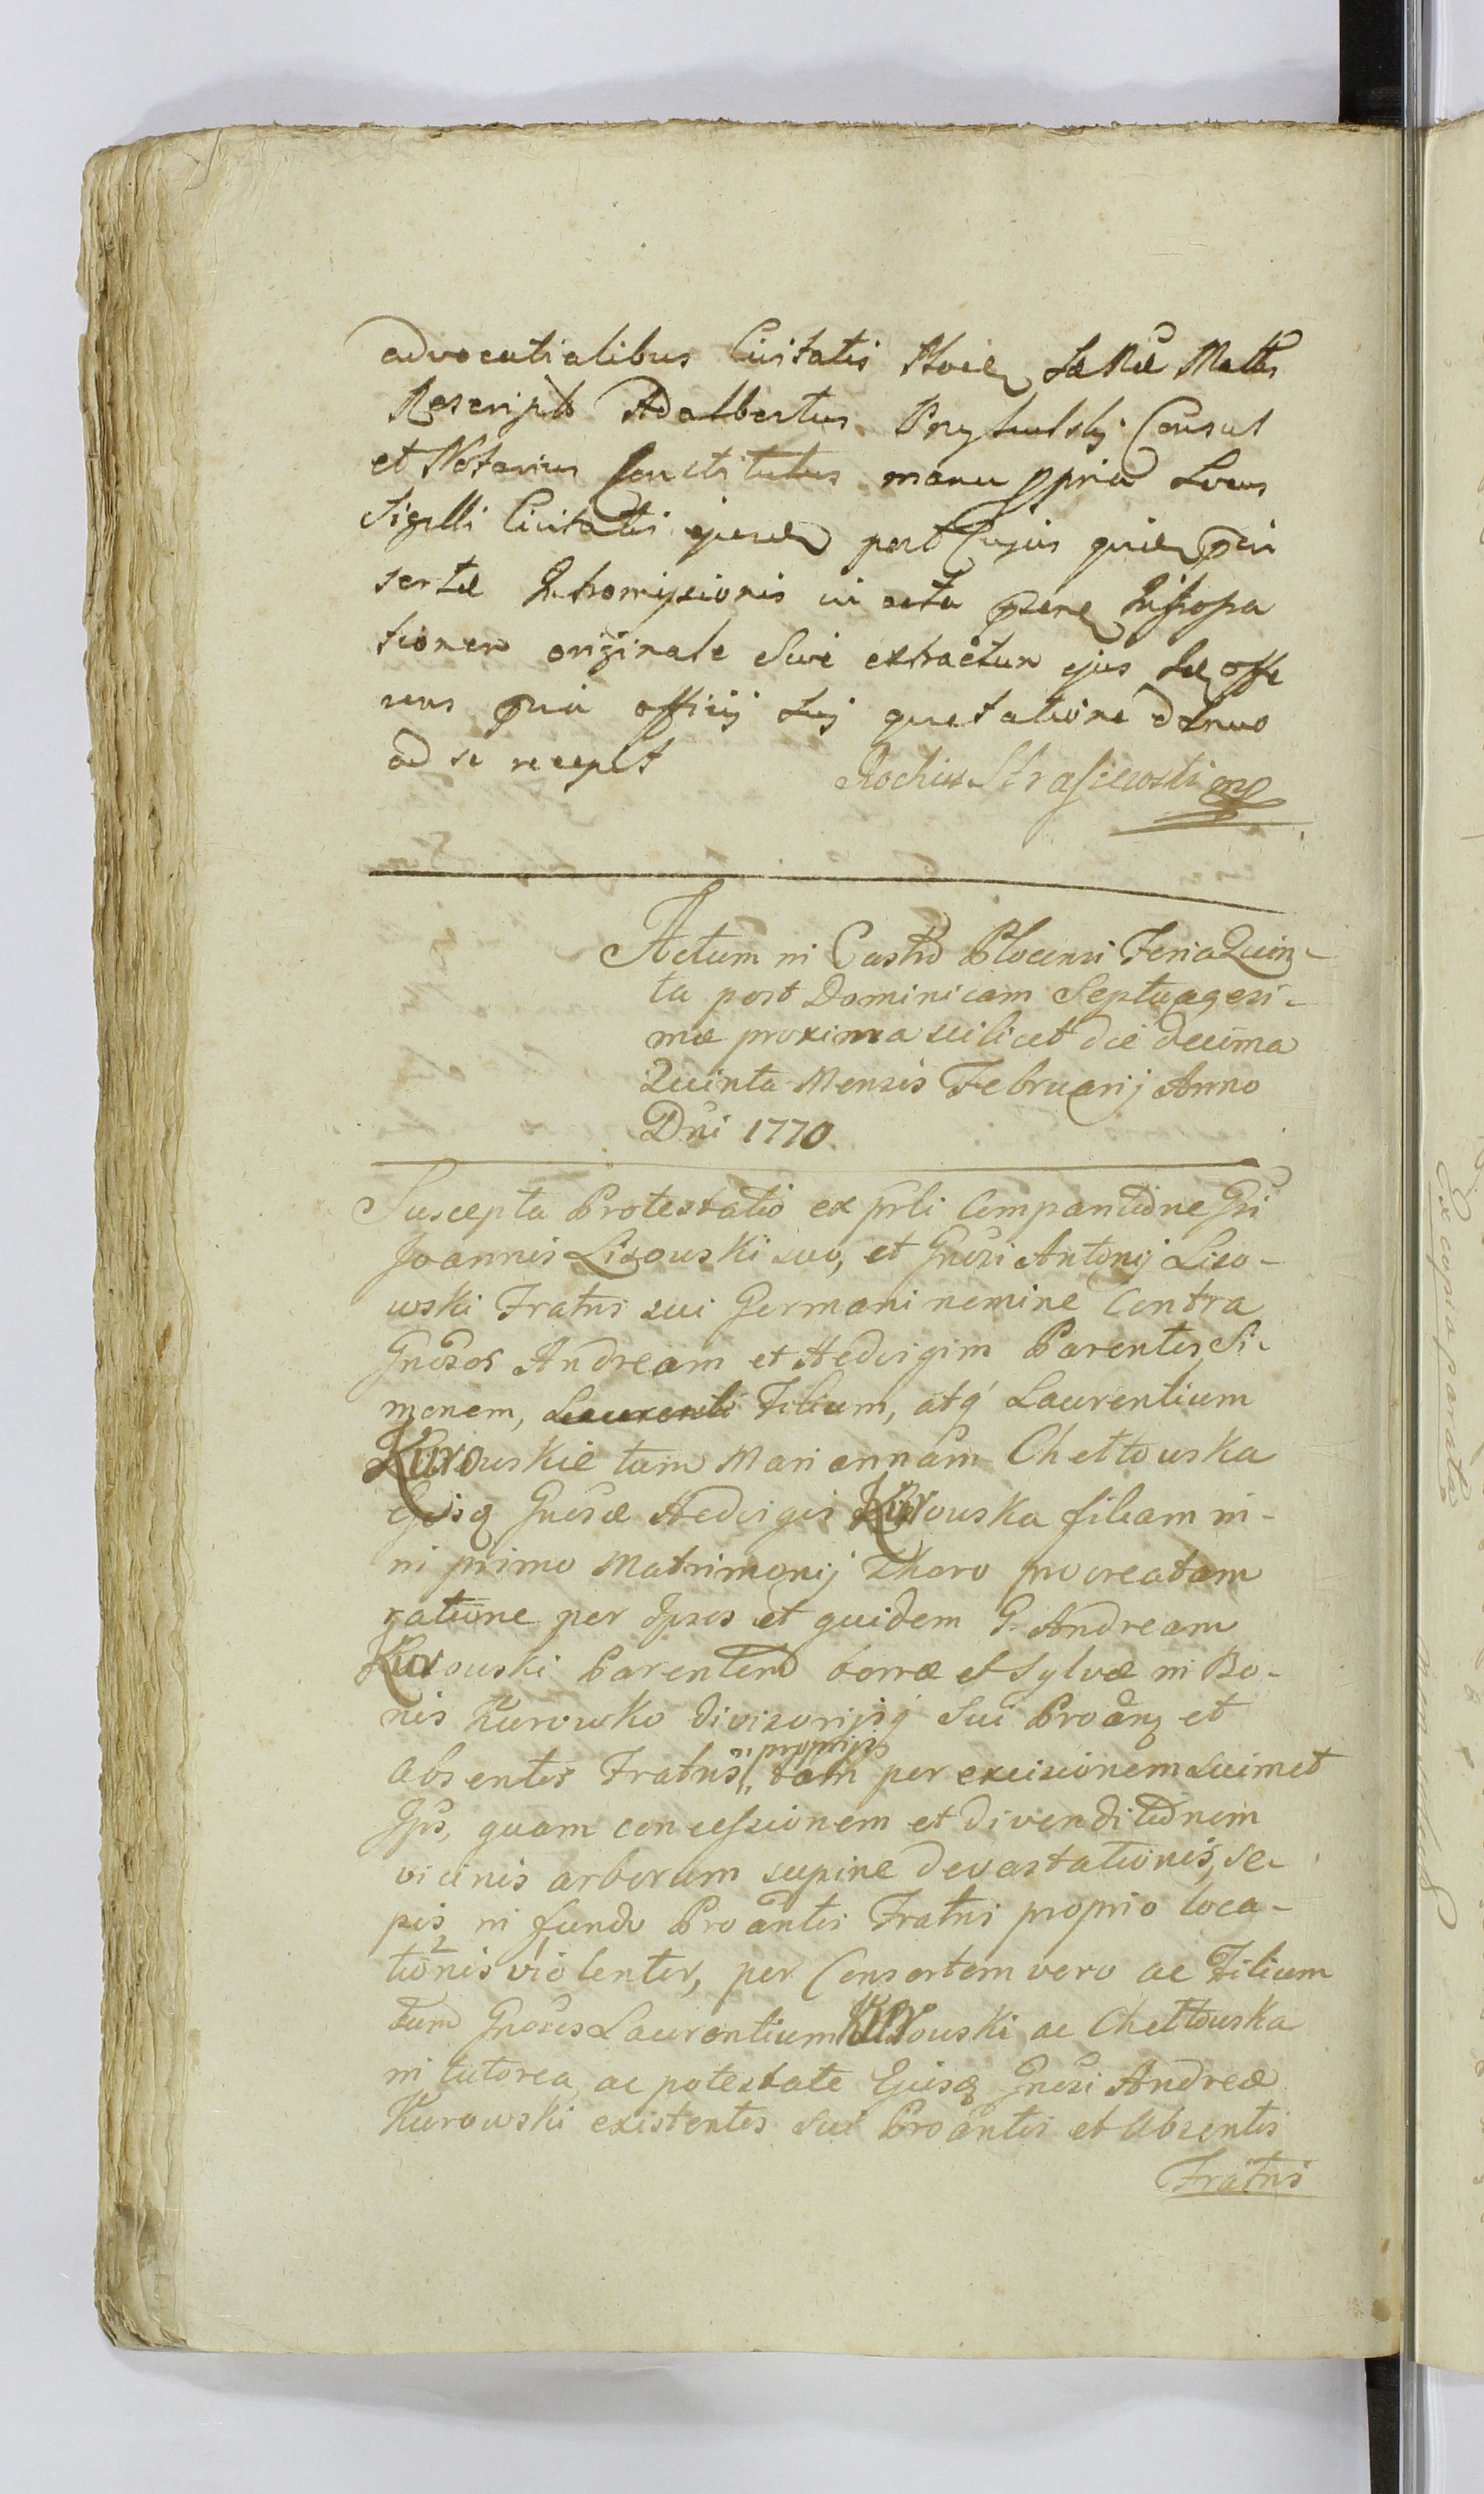 advocatialibus Civitatis
Rescripto Adalbertus Consul
et Notarius Constitutus manu ppria Locus
Sigilli Civitatis post Cujus
in acta
tionem originale Sive extractum ejus
officij quietatione
ad se recepit Rochus
Actum in Castro Plocensi Feria Quin-
ta post Dominicam Septuagesi-
mæ proxima scilicet die decima
Quinta Mensis Februarij Anno
Dni 1770
Suscepta Protestatio ex prli Comparitione Gsi
Joannis Lisouski suo, et Gnosi Antonij Liso-
wski Fratris sui Germani nomine Contra
Gnosos Andream et Hedvigim Parentes Si-
monem, Laurenti Filium, atq Laurentium
Kurouskie tum Mariannam Chettouska
Ejusq Gnosæ Hedvigis Kurouska filiam in-
ni primo Matrimonij Thoro procreatam
ratione per Ipsos et quidem G. Andream
Kurouski Parentem borræ et Sylvæ in Bo-
nis Kurowko divisorijsq Sui Proãnq et
Absentis Fratris proprijs tam per excisionem suimet
Ips, quam concessionem et divenditionem
vicinis arborum supine devastationis, se-
pis, in fundo Proãntis Fratris proprio loca-
tionis violenter, per Consortem vero ac Filium
tum Gnosos Laurentium Kurouski ac Chettouska
in tutorea, ac potestate Ejusq Gnosi Andreæ
Kurowski existentes Sui Proantis et Absentis
Fratris
Ex copia parata